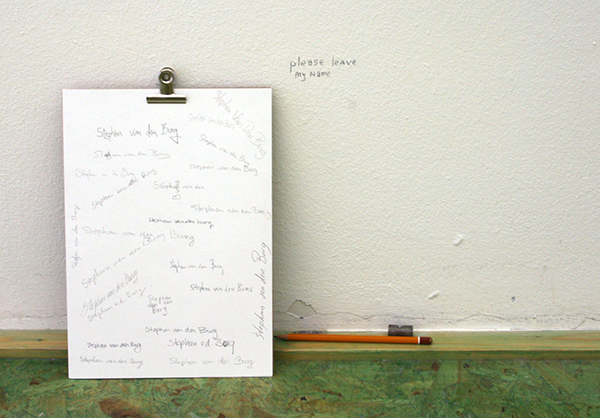 please leave
my name
Stephan van den Burg
Stephan van den Burg
Stephan van den Burg
Stephan van den Burg
Stephan van den Burg
Stephan van den Burg
Stephan van den
Stephan van den Burg
Stephan van den Burg
Stephan van den Burg
Stephan van den Burg
Stephan van den Burg
Stephan van den Burg
Stephan van den Burg
Stephan van den Burg
Stephan v.d. Burg
Stephan
Burg
Stephan van den Burg
Stephan van den Burg
Stephan vd Burg
Stephan van den Burg
Stephan van den Burg